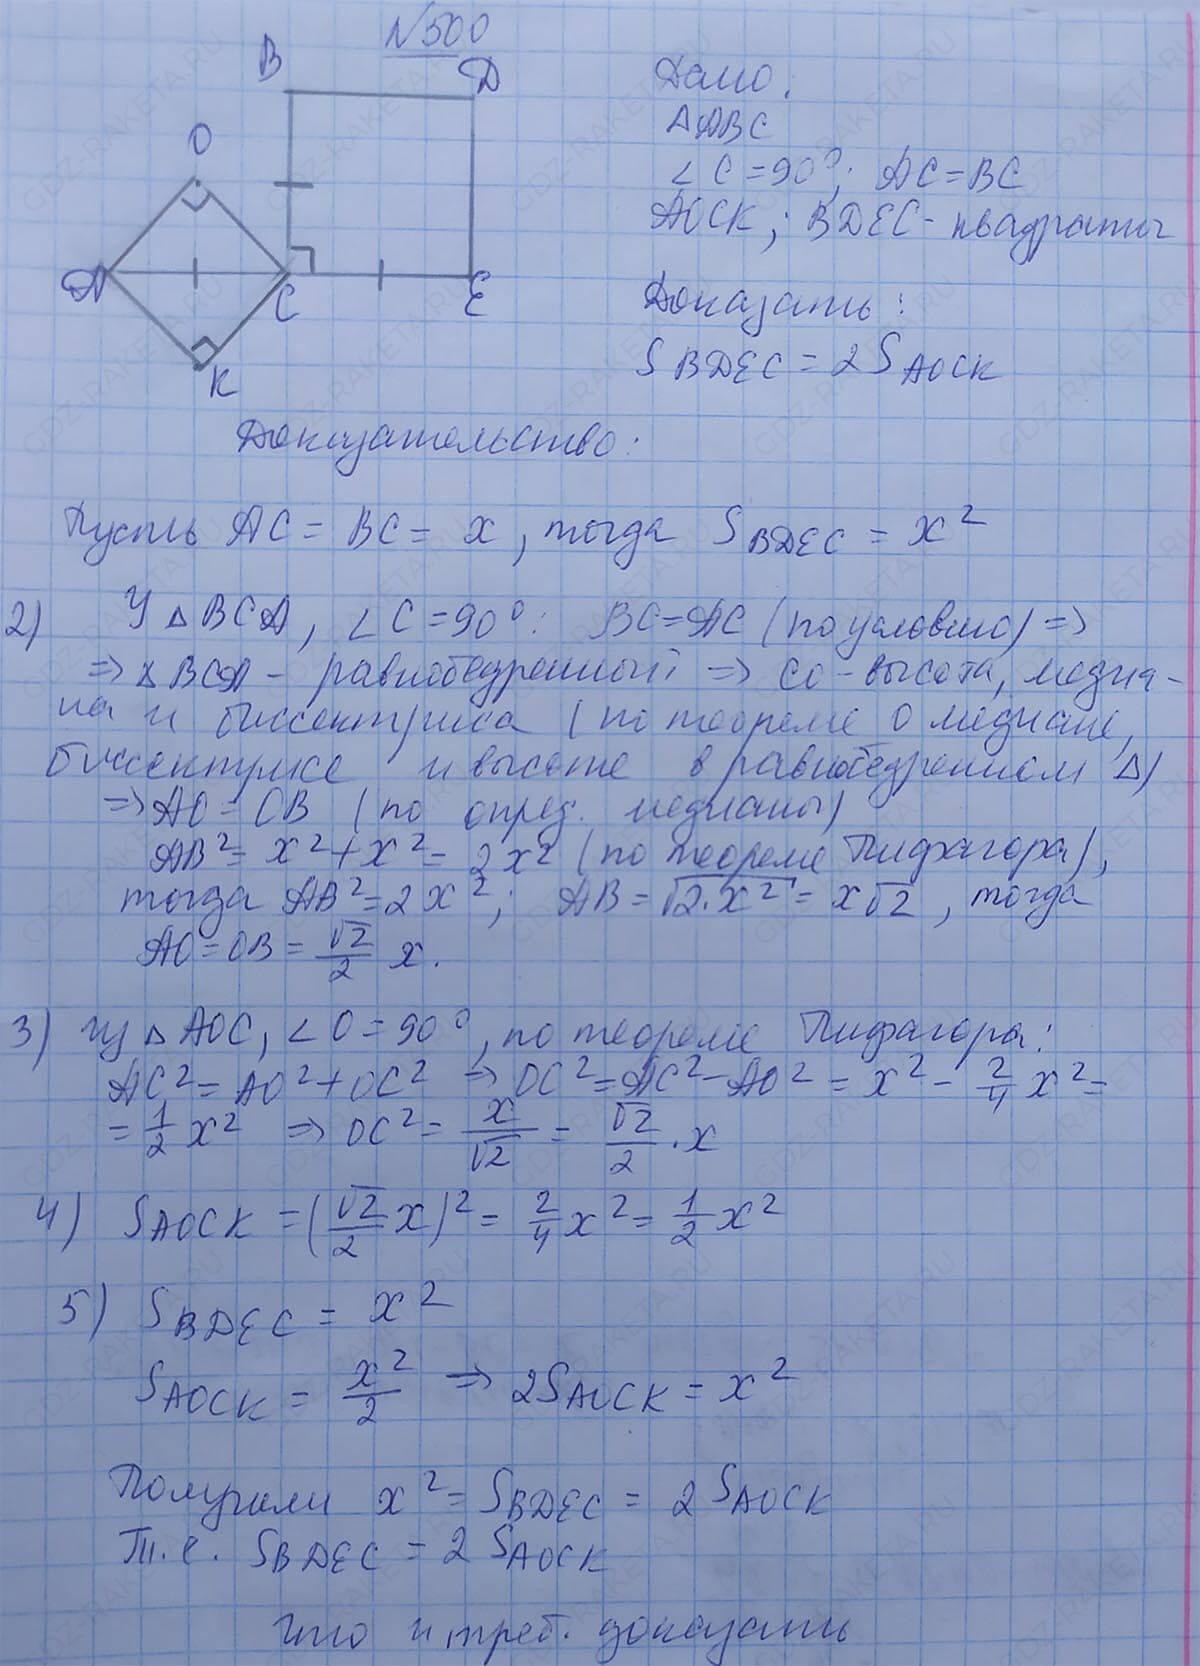 N500
B
D
O
A
C
E
K
Дано:
△ABC
∠C=90°; AC=BC
AOCK; BDEC - квадраты
Доказать:
S BDEC = 2 S AOCK
Доказательство:
Пусть AC = BC = x, тогда S BDEC = x²
2) У △BCA, ∠C=90°: BC=AC (по условию) ⇒
⇒ △BCA - равнобедренный ⇒ CO - высота, медиа-
на и биссектриса (по теореме о медиане,
биссектрисе и высоте в равнобедренном △)
⇒ AO = OB (по опред. медианы)
AB² = x² + x² = 2x² (по теореме Пифагора),
тогда AB² = 2x²; AB = √2·x² = x√2, тогда
AO = OB = √2/2 x.
3) из △AOC, ∠O = 90°, по теореме Пифагора:
AC² = AO² + OC² ⇒ OC² = AC² - AO² = x² - 2/4 x² =
= 1/2 x² ⇒ OC² = x/√2 = √2/2 · x
4) S AOCK = (√2/2 x)² = 2/4 x² = 1/2 x²
5) S BDEC = x²
S AOCK = x²/2 ⇒ 2S AOCK = x²
Получили x² = S BDEC = 2 S AOCK
Т.е. S BDEC = 2 S AOCK
что и треб. доказать
GDZ-RAKETA.RU